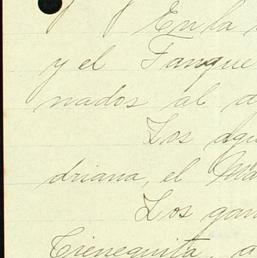 En la
y el Tanque
nados al
Los agu
driana, el
Los gan
Cieneguita, a